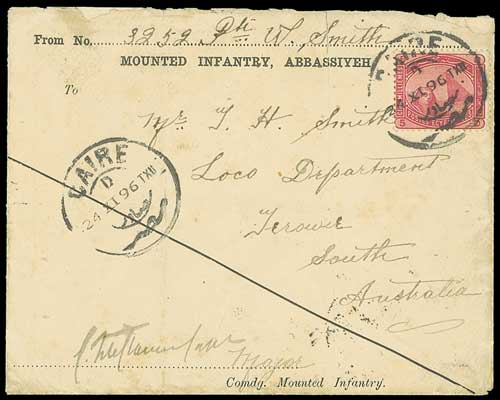 From No. 3252 Pte W. Smith
MOUNTED INFANTRY, ABBASSIYEH
To
Mr J. H. Smith
Loco Department
Terowie
South
Australia
CAIRE
D
24 XI 96 TXII
24 XI 96 TXII
5
Major
Comdg. Mounted Infantry.